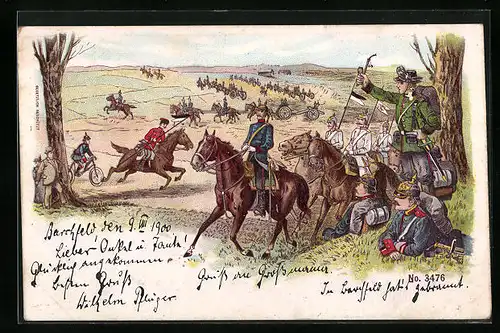 No. 3476
Barchfeld den 9. III 1900
Lieber Onkel u Tante!
Glücklich angekommen.
Besten Gruß
Wilhelm Pflüger
Gruß an Großmama
In Barchfeld hat's gebrannt.